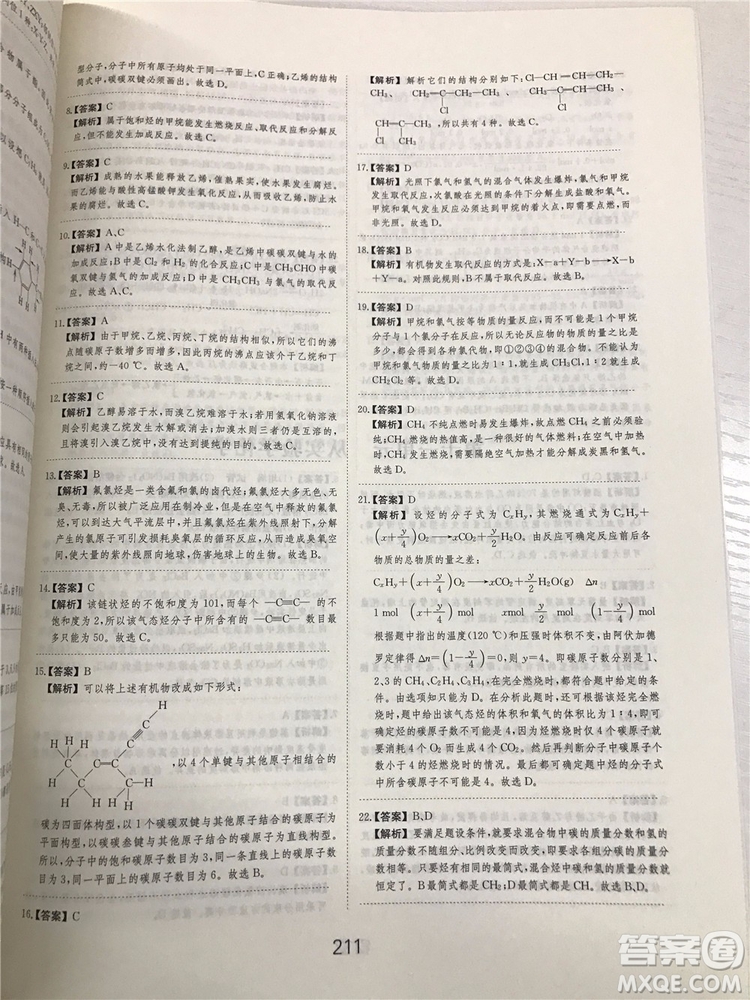 型分子,分子中所有原子均处于同一平面上,C正确;烯烃的结构
简式中,碳碳双键必须画出。故选D。
8.【答案】C
【解析】属于饱和烃的甲烷能发生燃烧反应、取代反应和分解反
应,但不能发生加成反应。故选C。
9.【答案】C
【解析】成熟的水果能释放乙烯,催熟果实,使水果发生腐烂。
而乙烯能与酸性高锰酸钾发生氧化反应,从而吸收乙烯,防止
发生腐烂。故选C。
10.【答案】A、C
【解析】A中是乙烯水化法制乙醇,是乙烯中碳碳双键与水的
加成反应;B中是Cl₂和H₂的化合反应;C中是CH₃CHO中碳
氧双键与氢气的加成反应;D中是CH₃CH₃与氯气的取代反
应。故选A、C。
11.【答案】A
【解析】由于甲烷、乙烷、丙烷、丁烷的结构相似,所以它们的沸
点随碳原子数增多而增多,因此丙烷的沸点应该介于乙烷与丁
烷之间,约−40 ℃。故选A。
12.【答案】C
【解析】乙醇易溶于水,而溴乙烷难溶于水;若用氢氧化钠溶液
则会引起溴乙烷的水解反应;若用溴水则会引入新杂质溴,且
若将溴引入溴乙烷中,更难以除去。故选C。
13.【答案】B
【解析】氟氯烃是一类含氟和氯的卤代烃;氟氯烃大多无色、无
臭、无毒,所以被广泛应用在制冷业,但是它的化学性质稳定,
所以在大气平流层中,并且氟氯烃在紫外线照射下,分解产生
的氯原子可引发损耗臭氧层的循环反应,从而造成臭氧空
间,使大量的紫外线照向地球,伤害地球生物。故选B。
14.【答案】C
【解析】该链状烃的不饱和度为101,而每个 —C≡C— 的不
饱和度为2,所以该气态烃分子中所含的 —C≡C— 数目最
多只能为50。故选C。
15.【答案】B
【解析】可以将上述有机物改成如下形式:
H
C
C
H H
H
C
C C
C
C—H
H H H H
,以4个单键与其他原子相结合的
碳为四面体构型,以1个碳碳双键与其他原子结合的碳为平面构
型,以碳碳叁键与其他原子结合的碳原子为直线构型。
所以,分子中的饱和碳原子数目为3,同一条直线上的碳原子数
目为4,同一平面上的碳原子数目为6。故选B。
16.【答案】C
【解析】解析它们的结构分别如下:Cl—CH═CH—CH₂—
CH₃、CH₂═C—CH₂—CH₃、CH₃—C═CH—CH₃、
Cl Cl
CH═C—CH₃,所以共有4种。故选C。
Cl CH₃
17.【答案】D
【解析】光照下氯气和氢气的混合气体发生爆炸,氯气和甲烷
发生取代反应,次氯酸在光照的条件下分解生成盐酸和氧气。
甲烷和氧气发生反应必须达到甲烷的着火点,即需要点燃,而
非光照。故选D。
18.【答案】B
【解析】有机物发生取代反应的方式是:X—a+Y—b⟶X—b
+Y—a。对照此规则,B不属于取代反应。故选B。
19.【答案】D
【解析】甲烷和氯气按等物质的量反应,而不可能是1个甲烷
分子与1个氯气分子反应,所以无论反应物的物质的量之比是
多少,都会得到混合物,即①②③④的混合物。不能因为
甲烷和氯气的物质的量之比是1∶1,就只生成CH₃Cl,1∶2就
生成CH₂Cl₂等。故选D。
20.【答案】D
【解析】CH₄不纯点燃时易发生爆炸,故点燃CH₄前必须验
纯。CH₄燃烧的热值高,是一种很好的燃料。CH₄的热稳定
性很好,需要隔绝空气加热才能分解生成炭黑和氢气。故
选D。
21.【答案】D
【解析】设烃的分子式为CₓHᵧ,其燃烧通式为CₓHᵧ+
(x+y/4)O₂⟶xCO₂+y/2H₂O。由反应可确定反应前后各
物质的总物质的量之差:
CₓHᵧ+(x+y/4)O₂⟶xCO₂+y/2H₂O(g) Δn
1 mol (x+y/4)mol xmol y/2mol (1−y/4)mol
根据题中指出的温度(120 ℃)和压强时体积不变,由阿伏加德
罗定律得Δn=(1−y/4)=0,则y=4。即碳原子数分别是1、
2、3的CH₄、C₂H₄、C₃H₄,在完全燃烧时,都符合题中的条
件。由选项可知只能为前者。根据题意可知该烃完全燃
烧时,给出了该气态烃的体积和氧气的体积比为1∶4,即可确
定碳原子数不可能是4。因为若碳原子数为4,则燃烧时碳就
要消耗4个氧气生成4个CO₂。然后再判断分子中碳原子个
数小于4的烃燃烧时的可能性。符合碳原子数要求的分子式
只能是CH₄。故选D。
22.【答案】B、D
【解析】要满足题设条件,就要求混合物中碳的质量分数和氢的
质量分数不随组分、比例改变而改变,即两组分应具有相同的最
简式。只要烃有相同的最简式,混合烃中碳的质量分数就是恒
定的。B最简式都为CH₂;D最简式都为CH。故选B、D。
211
答案圈
MXQE.COM